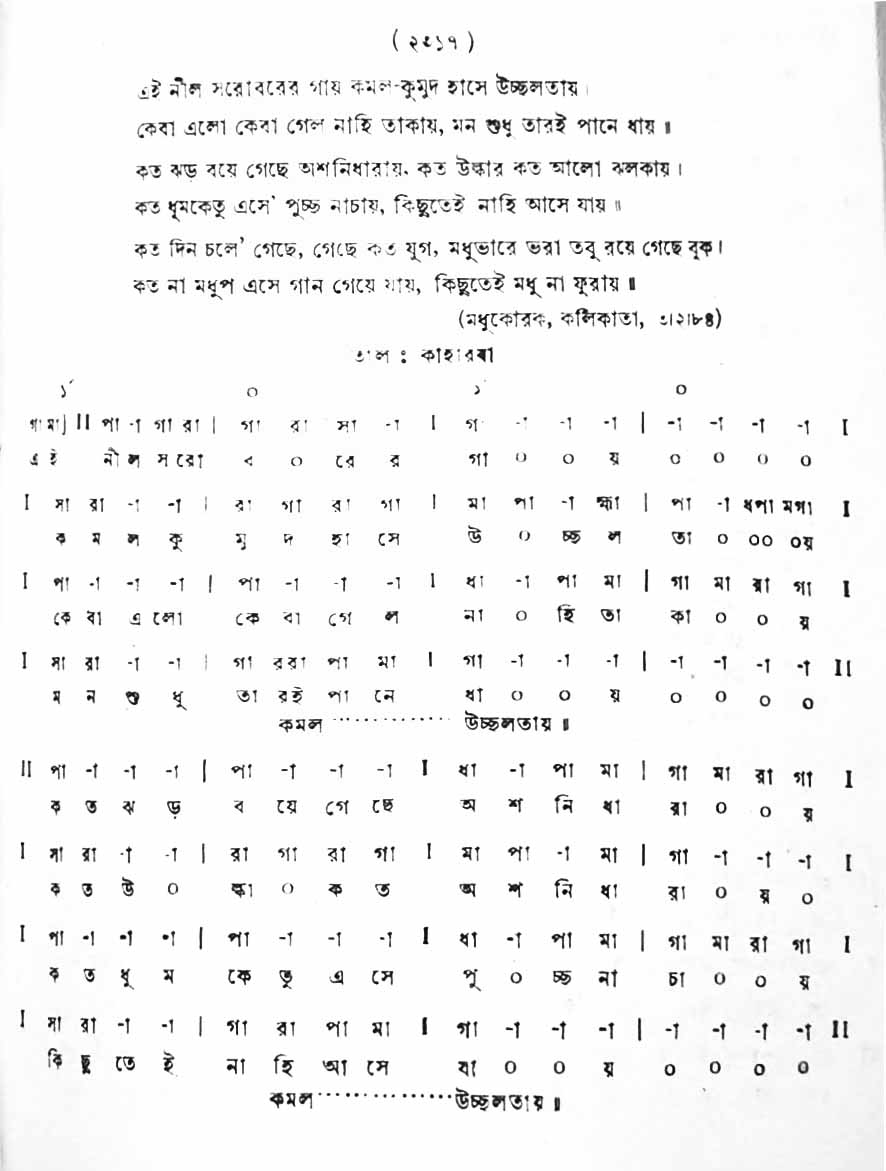 ( ২৫১৭ )
এই নীল সরোবরের গায় কমল-কুমুদ হাসে উচ্ছলতায়।
কেবা এলো কেবা গেল নাহি তাকায়, মন শুধু তারই পানে ধায়॥
কত ঝড় বয়ে গেছে অশনিধারায়, কত উল্কার কত আলো ঝলকায়।
কত ধূমকেতু এসে' পুচ্ছ নাচায়, কিছুতেই নাহি আসে যায়॥
কত দিন চলে' গেছে, গেছে কত যুগ, মধুভারে ভরা তবু রয়ে গেছে বুক।
কত না মধুপ এসে গান গেয়ে যায়, কিছুতেই মধু না ফুরায়॥
(মধুকোরক, কলিকাতা, ৩।২।৮৪)
তাল : কাহারবা
১´ ০ ১´ ০
গা মা] II পা -া গা রা | গা রা সা -া I গা -া -া -া | -া -া -া -া I
এ ই নী ল স রো ব ০ রে র গা ০ ০ য় ০ ০ ০ ০
I সা রা -া -া | রা গা রা গা I মা পা -া হ্মা | পা -া ধপা মগা I
ক ম ল কু মু দ হা সে উ ০ চ্ছ ল তা ০ ০০ ০য়
I পা -া -া -া | পা -া -া -া I ধা -া পা মা | গা মা রা গা I
কে বা এ লো কে বা গে ল না ০ হি তা কা ০ ০ য়
I সা রা -া -া | গা ররা পা মা I গা -া -া -া | -া -া -া -া II
ম ন শু ধু তা রই পা নে ধা ০ ০ য় ০ ০ ০ ০
কমল ·············· উচ্ছলতায়॥
II পা -া -া -া | পা -া -া -া I ধা -া পা মা | গা মা রা গা I
ক ত ঝ ড় ব য়ে গে ছে অ শ নি ধা রা ০ ০ য়
I সা রা -া -া | রা গা রা গা I মা পা -া মা | গা -া -া -া I
ক ত উ ০ ল্কা ০ ক ত অ শ নি ধা রা ০ য় ০
I পা -া -া -া | পা -া -া -া I ধা -া পা মা | গা মা রা গা I
ক ত ধূ ম কে তু এ সে পু ০ চ্ছ না চা ০ ০ য়
I সা রা -া -া | গা রা পা মা I গা -া -া -া | -া -া -া -া II
কি ছু তে ই না হি আ সে যা ০ ০ য় ০ ০ ০ ০
কমল ················ উচ্ছলতায়॥